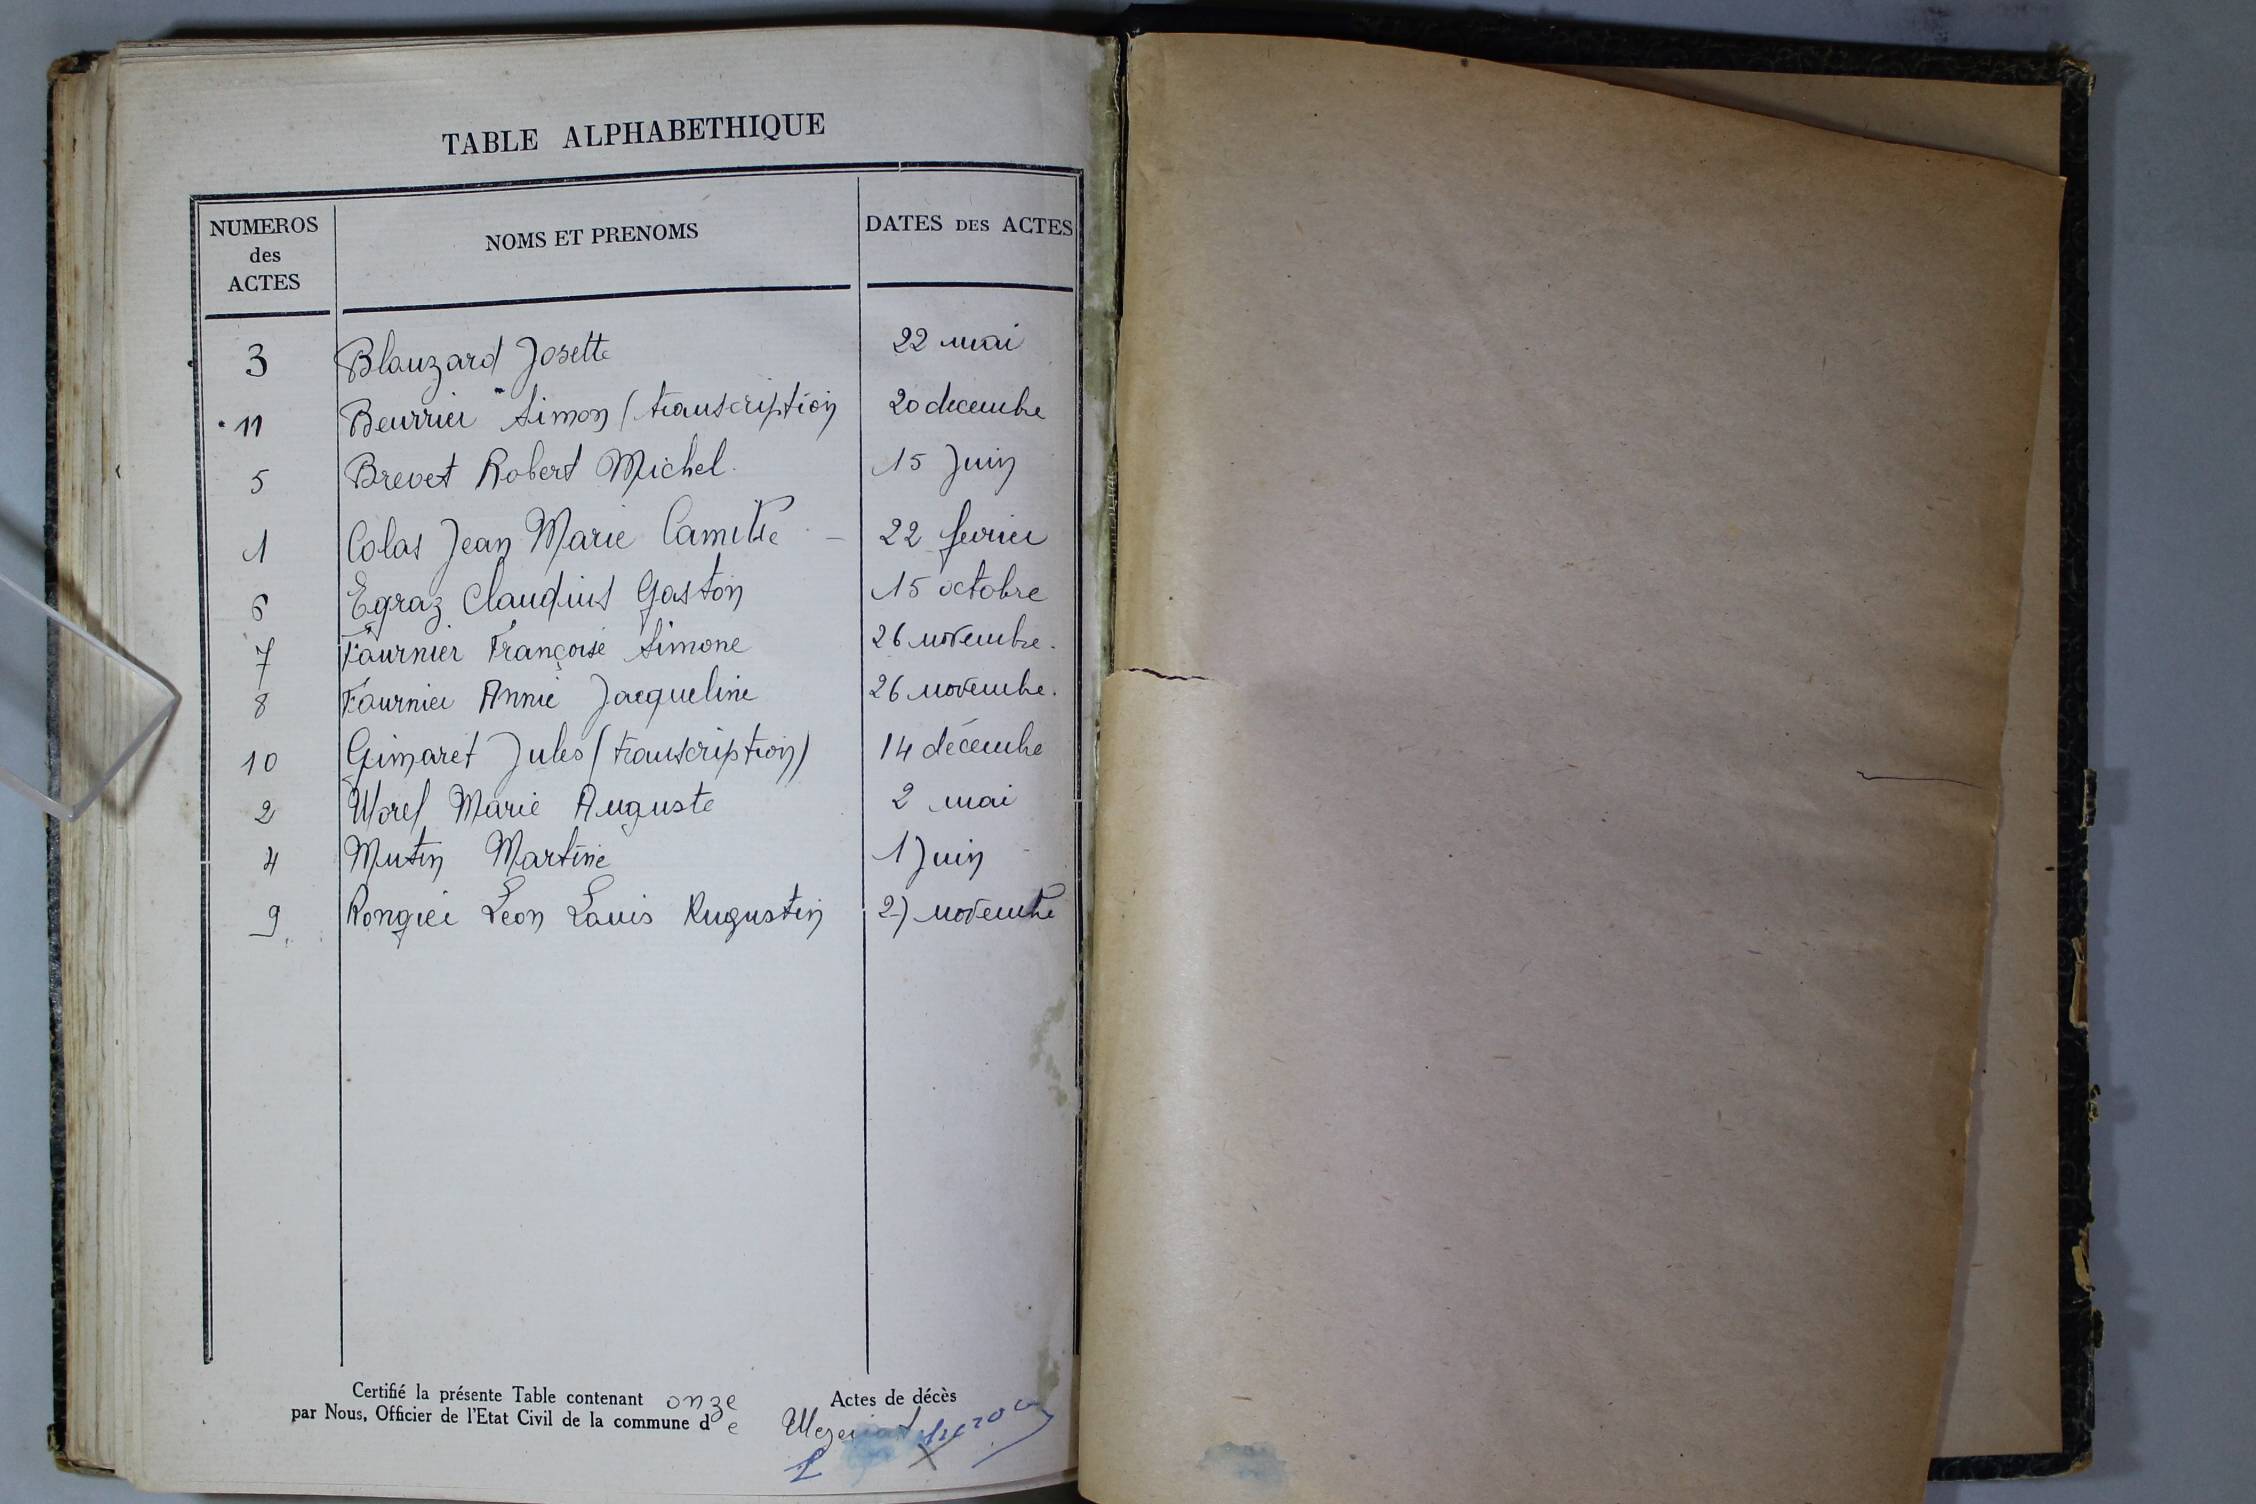 TABLE ALPHABETHIQUE
NUMEROS des ACTES NOMS ET PRENOMS DATES DES ACTES
3 Blauzard Josette 22 mai
11 Beurrier Simon (transcription 20 decembre
5 Brevet Robert Michel. 15 Juin
1 Colas Jean Marie Camille – 22 fevrier
6 Egraz Claudius Gaston 15 octobre
7 Fournier Françoise Simone 26 novembre.
8 Fournier Annie Jacqueline 26 novembre.
10 Gimaret Jules (transcription) 14 décembre
2 Morel Marie Auguste 2 mai
4 Mutin Martine 1 Juin
9 Rongier Leon Louis Augustin 27 novembre
Certifié la présente Table contenant onze Actes de décès
par Nous, Officier de l'Etat Civil de la commune de Mezeriat